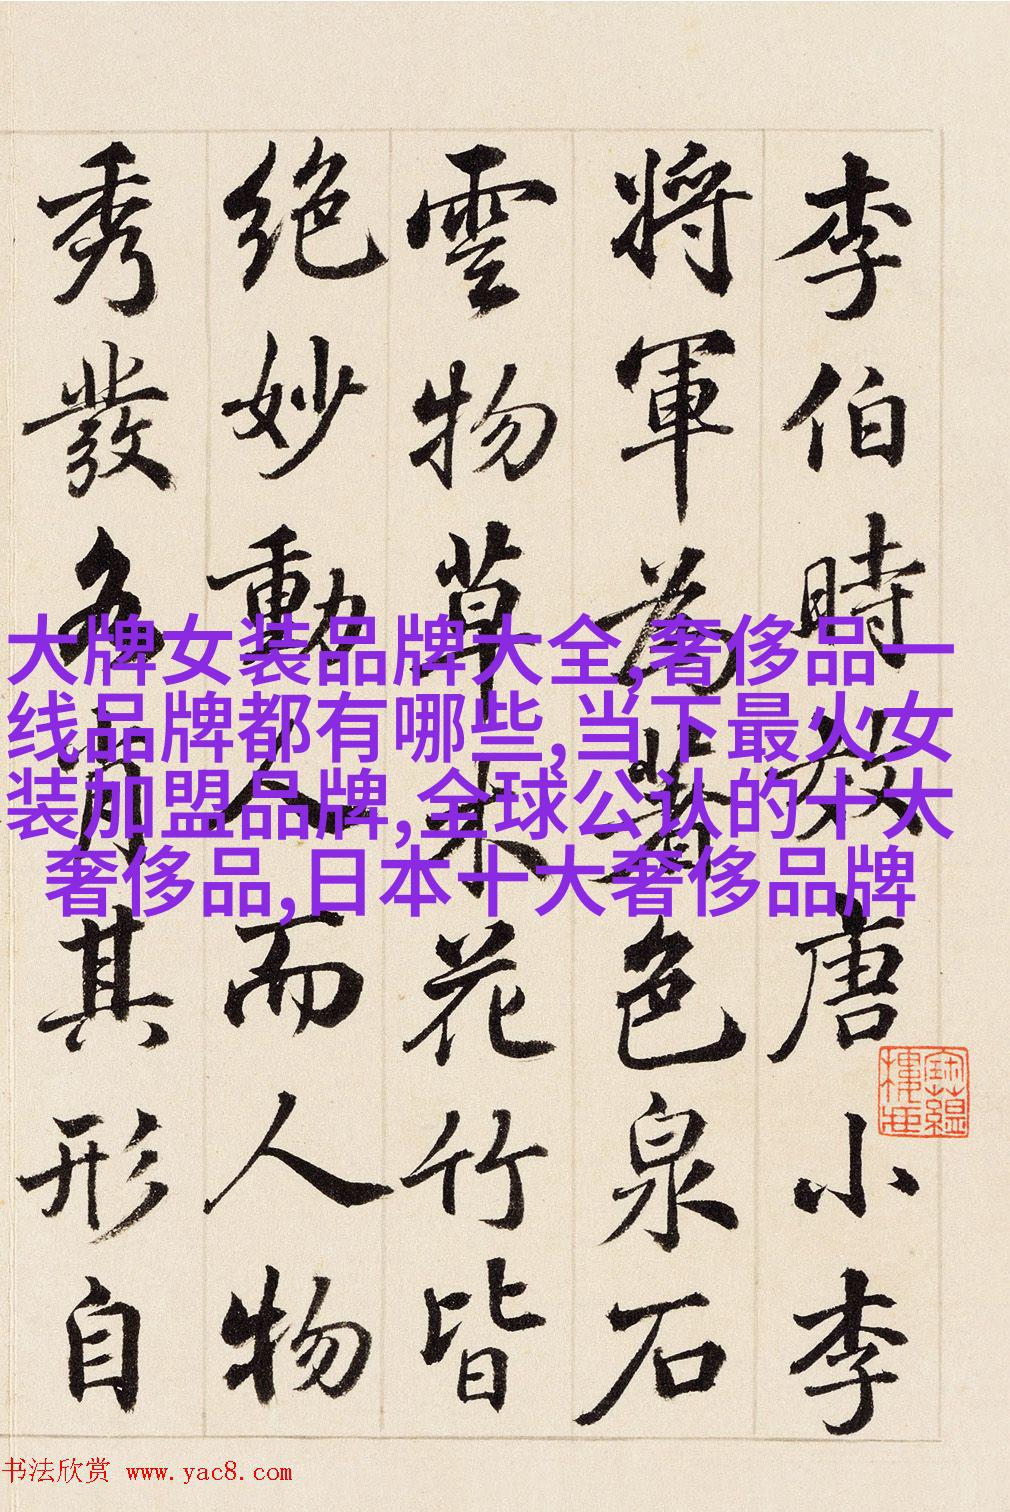 李伯時效唐小李
將軍為著色泉石
雲物草木花竹皆
絕妙動人而人物
秀發各肖其形自
大牌女装品牌大全,奢侈品一
线品牌都有哪些,当下最火女
装加盟品牌,全球公认的十大
奢侈品,日本十大奢侈品牌
书法欣赏 www.yac8.com